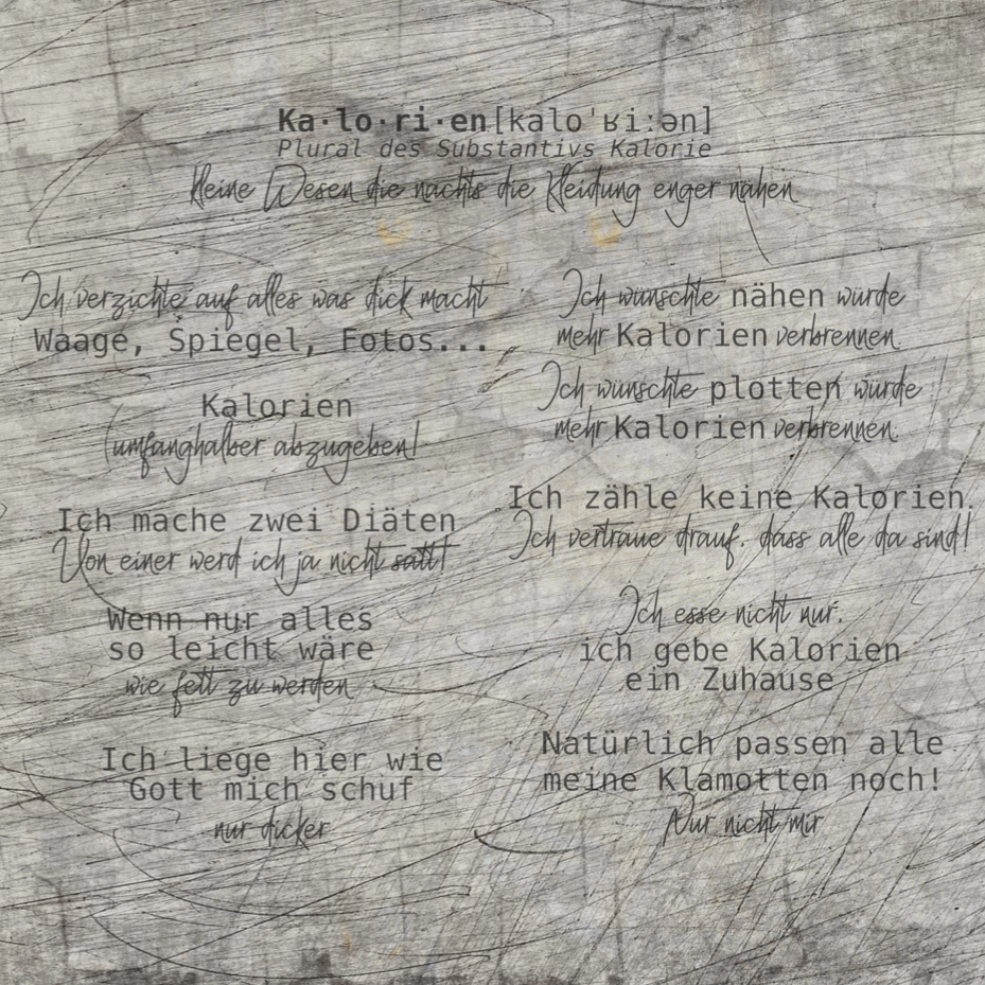 Ka·lo·ri·en[kaloˈʁiːən]
Plural des Substantivs Kalorie
kleine Wesen die nachts die Kleidung enger nähen
Ich verzichte auf alles was dick macht
Waage, Spiegel, Fotos...
Kalorien
(umfanghalber abzugeben!
Ich mache zwei Diäten
Von einer werd ich ja nicht satt!
Wenn nur alles
so leicht wäre
wie fett zu werden
Ich liege hier wie
Gott mich schuf
nur dicker
Ich wünschte nähen würde
mehr Kalorien verbrennen.
Ich wünschte plotten würde
mehr Kalorien verbrennen.
Ich zähle keine Kalorien.
Ich vertraue drauf. dass alle da sind!
Ich esse nicht nur.
ich gebe Kalorien
ein Zuhause
Natürlich passen alle
meine Klamotten noch!
Nur nicht mir